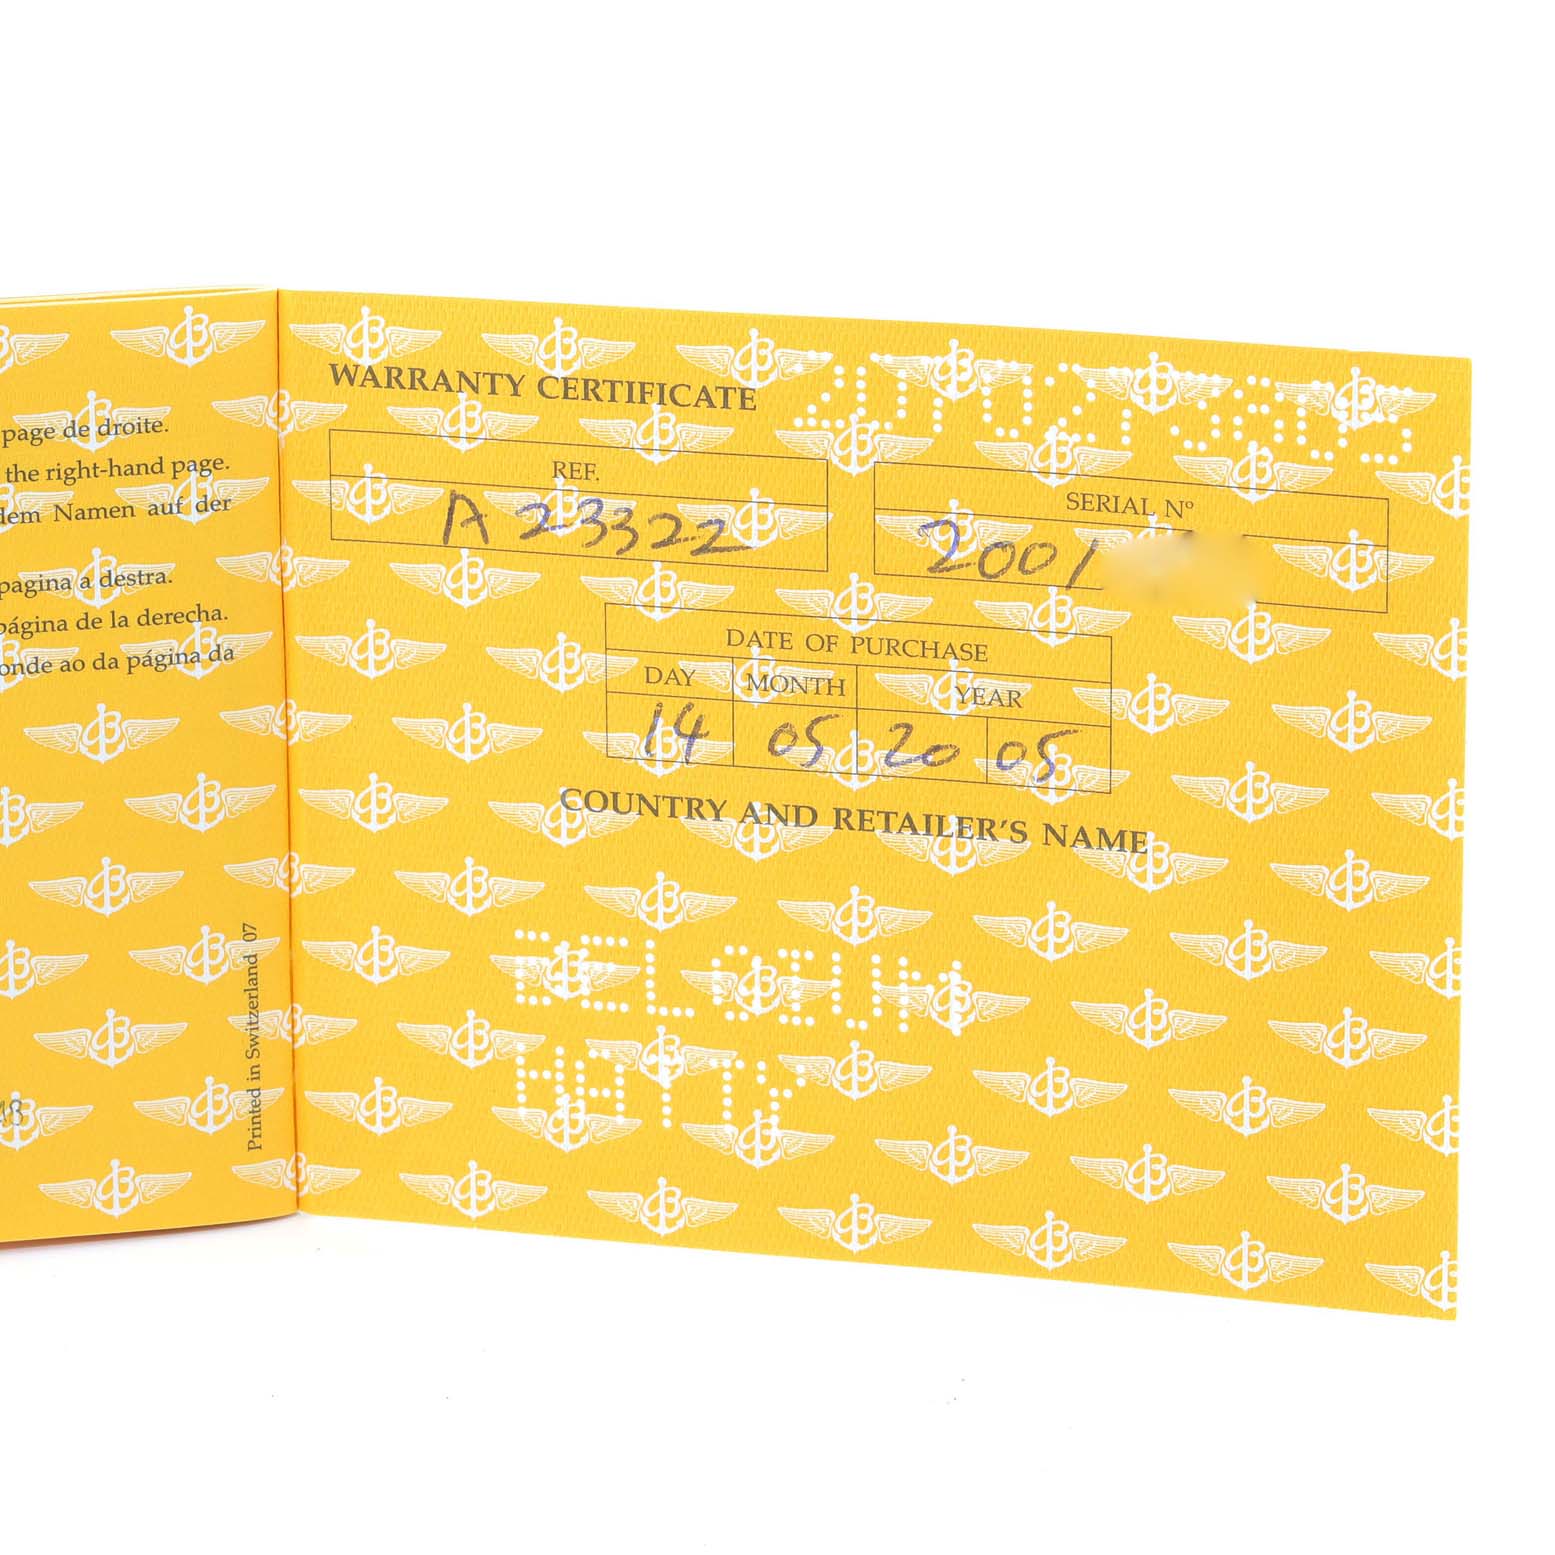 page de droite.
the right-hand page.
dem Namen auf der
pagina a destra.
página de la derecha.
onde ao da página da
48
Printed in Switzerland 07
WARRANTY CERTIFICATE
REF.
A 23322
SERIAL Nº
2001
DATE OF PURCHASE
DAY MONTH YEAR
14 05 20 05
COUNTRY AND RETAILER'S NAME
BELGIUM